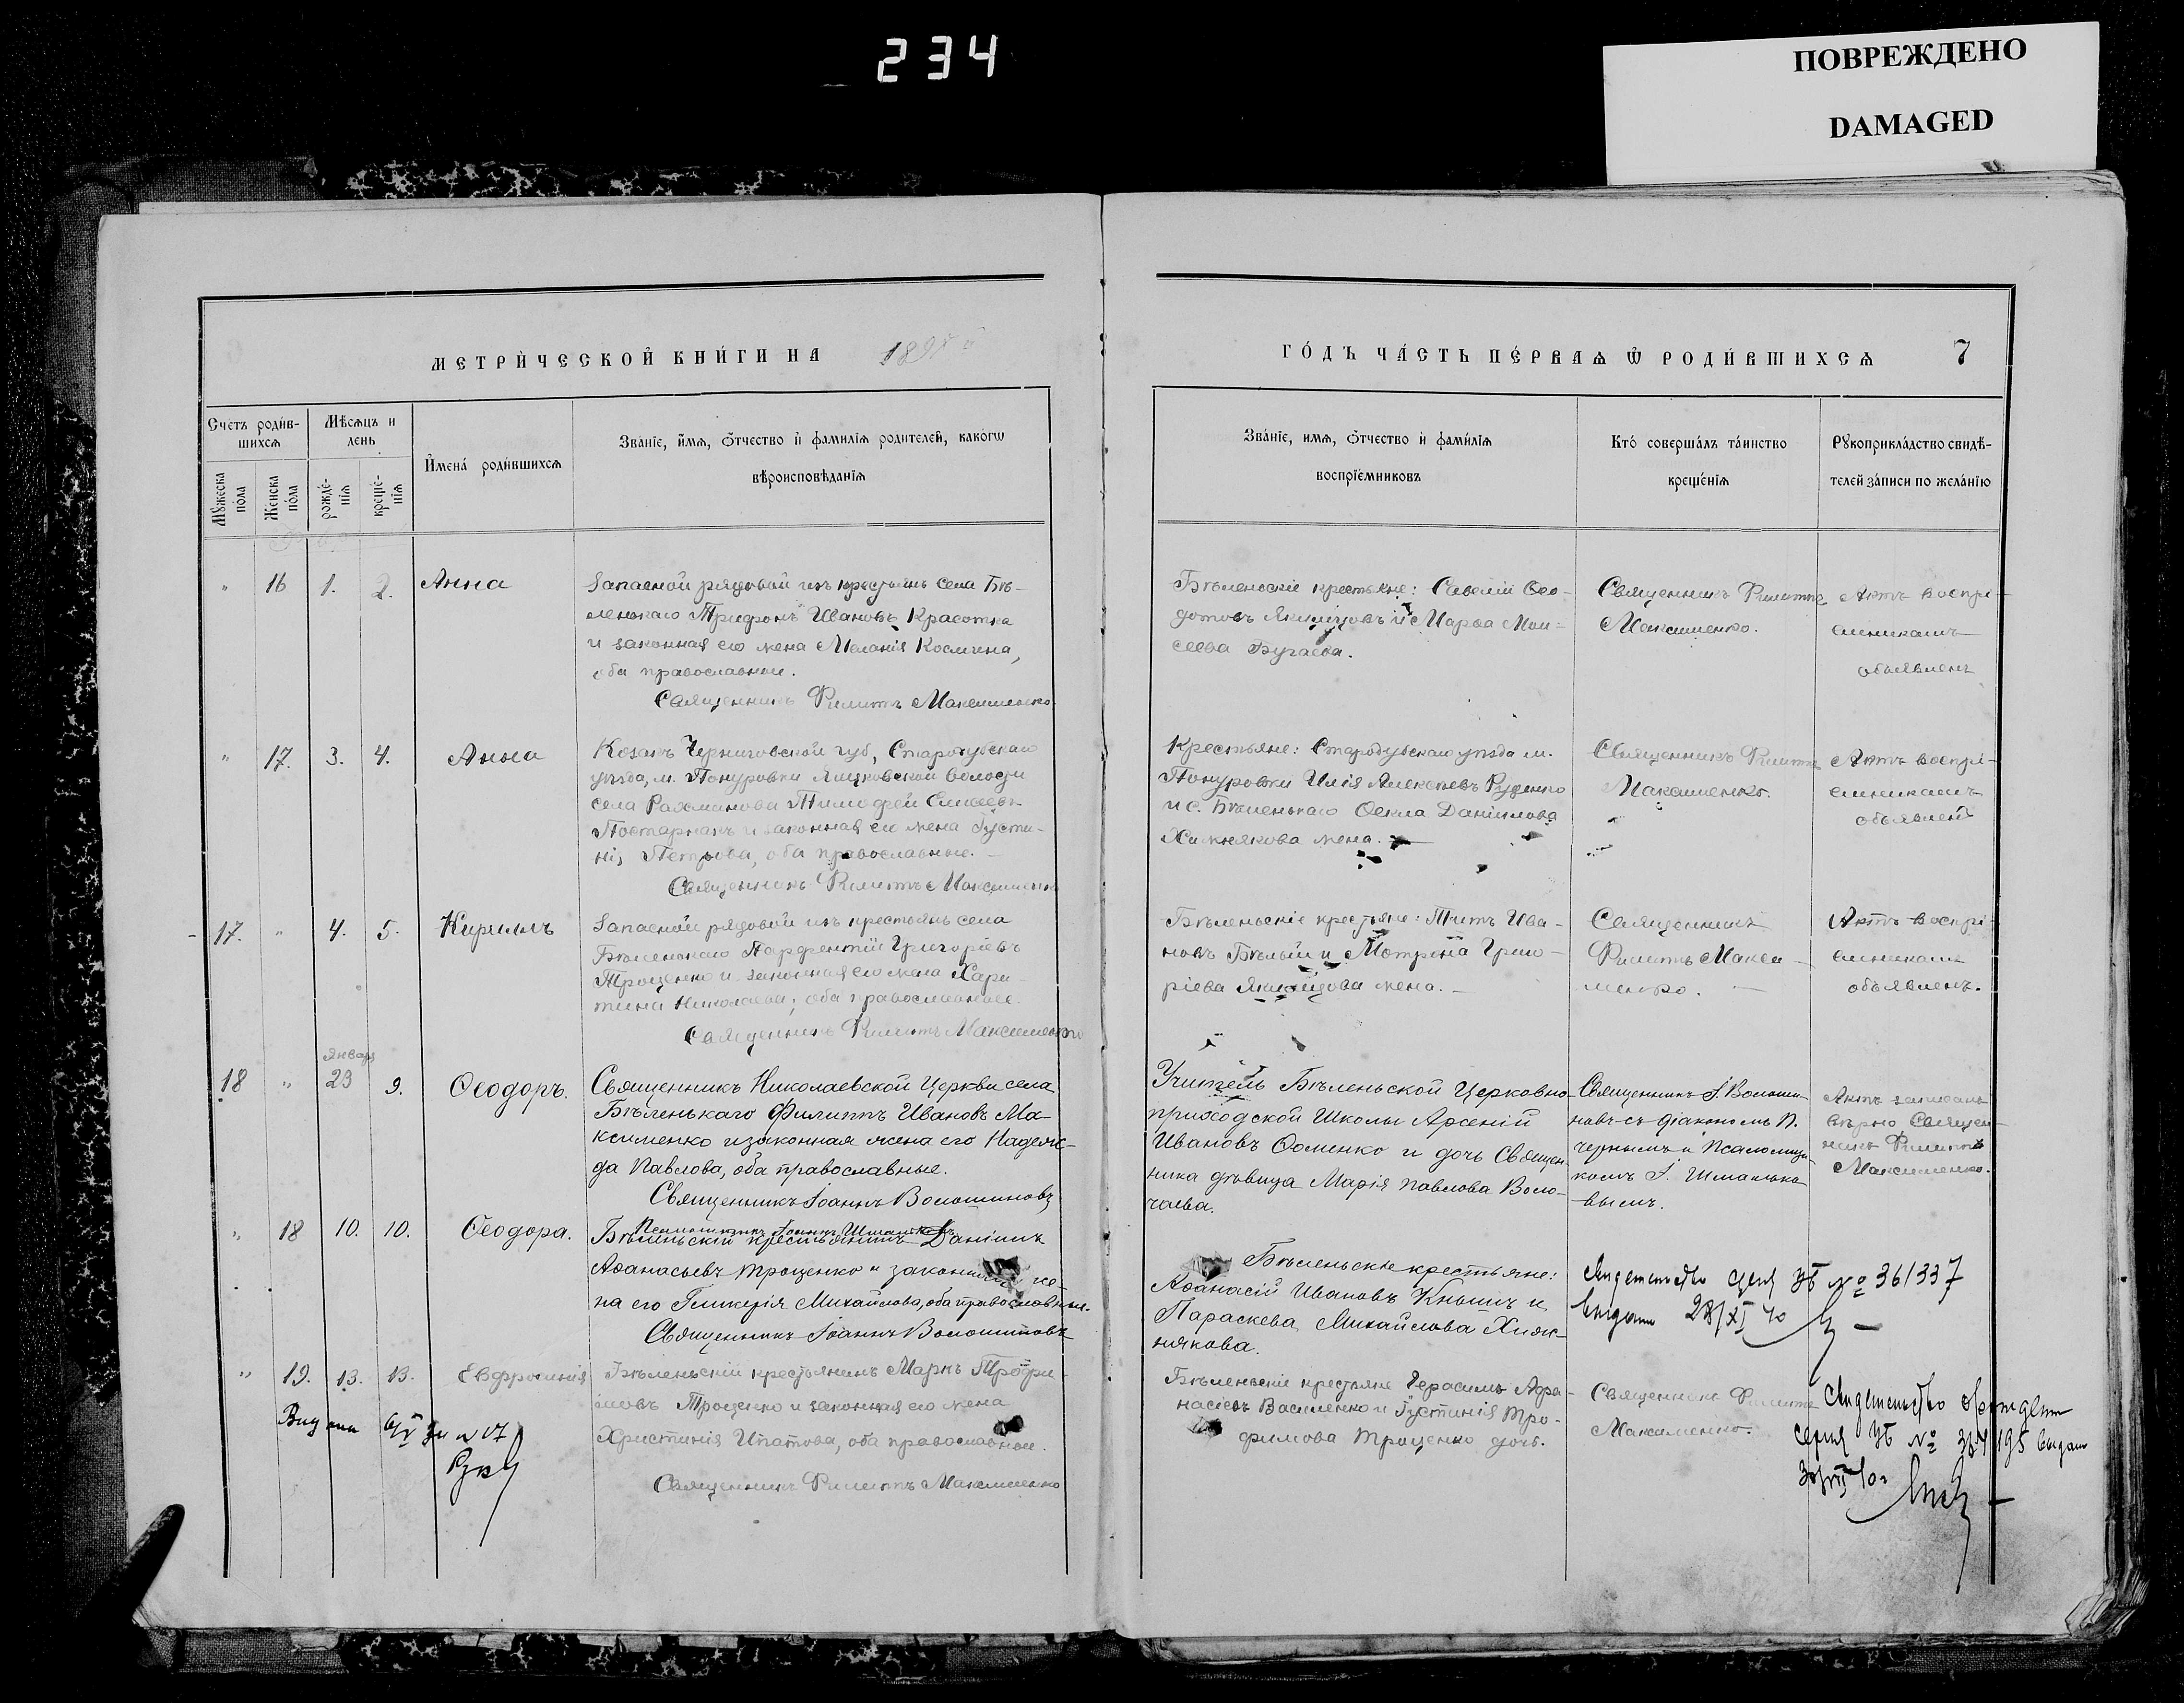 234
ПОВРЕЖДЕНО
DAMAGED
МЕТРИ́ЧЕСКОЙ КНИ́ГИ НА 189
ГО́ДЪ ЧА́СТЬ ПЕ́РВАѦ Ѿ РОДИ́ВШИХСѦ 7
Счетъ роди́в-
шихсѧ
Мѣ́сѧцъ и
день
И҆мена́ роди́вшихсѧ
Зва́нїе, и҆́мѧ, ѻ҆́тчество и҆ фами́лїѧ роди́телей, како́гѡ
вѣроисповѣ́данїѧ
Мꙋжеска
по́ла
Же́нска
по́ла
рожде́-
нїѧ
креще́-
нїѧ
Зва́нїе, имѧ, ѻ҆́тчество и҆ фами́лїѧ
воспрїе́мниковъ
Кто́ соверша́лъ та́инство
креще́нїѧ
Рꙋкоприкла́дство свидѣ́-
телей за́писи по жела́нїю
" 16 1. 2. Анна
Запасной рядовой изъ крестьянъ села Бѣ-
ленькаго Трифонъ Ивановъ Красотка
и законная его жена Меланія Космина,
оба православные.
Священникъ Филиппъ Максименко.
Бѣленьскіе крестьяне: Савелій Ѳео-
дотовъ Якимцовъ и Марѳа Мои-
сеева Бугаева.
Священникъ Филиппъ
Максименко.
Актъ воспрі-
емникамъ
объявленъ
" 17. 3. 4. Анна
Козакъ Черниговской губ, Стародубскаго
уѣзда, м. Понуровки Яцковской волости
села Рахманова Тимофей Елисеевъ
Постарнакъ и законная его жена Густи-
нія Петрова, оба православные.
Священникъ Филиппъ Максименко
Крестьяне: Стародубскаго уѣзда м.
Понуровки Илія Алексѣевъ Руденко
и с. Бѣленькаго Ѳекла Даніилова
Хижнякова жена.
Священникъ Филиппъ
Максименко.
Актъ воспрі-
емникамъ
объявленъ
17. " 4. 5. Кириллъ
Запасной рядовой изъ крестьянъ села
Бѣленькаго Парфентій Григоріевъ
Троценко и законная его жена Хари-
тина Николаева, оба православные.
Священникъ Филиппъ Максименко
Бѣленьскіе крестьяне: Титъ Ива-
новъ Бѣлый и Мотрона Григо-
ріева Якимцова жена.
Священникъ
Филиппъ Макси-
менко.
Актъ воспрі-
емникамъ
объявленъ.
Января
18 " 23 9. Ѳеодоръ.
Священникъ Николаевской Церкви села
Бѣленькаго Филиппъ Ивановъ Ма-
ксименко и законная жена его Надеж-
да Павлова, оба православные.
Священникъ Іоаннъ Волошиновъ
Псаломщикъ Іоаннъ Шмалько
Учитель Бѣленьской Церковно-
приходской Школы Арсеній
Ивановъ Ѳоменко и дочь Священ-
ника дѣвица Марія Павлова Воло-
чаева.
Священникъ І. Волоши-
новъ съ діакономъ П.
Чернымъ и Псаломщи-
комъ І. Шмалько-
вымъ.
Актъ записанъ
вѣрно Священ-
никъ Филиппъ
Максименко.
" 18 10. 10. Ѳеодора.
Бѣленьскій крестьянинъ Даніилъ
Аѳанасьевъ Троценко и законная же-
на его Гликерія Михайлова, оба православные.
Священникъ Іоаннъ Волошиновъ
Бѣленьскіе крестьяне:
Аѳанасій Ивановъ Кнышъ и
Параскева Михайлова Хиж-
някова.
№ 361337
28/XI 40
" 19. 13. 13. Евфросинія
Бѣленьскій крестьянинъ Маркъ Трофи-
мовъ Троценко и законная его жена
Христинія Ипатова, оба православные.
Священникъ Филиппъ Максименко
Бѣленьскіе крестьяне Герасимъ Афа-
насіевъ Василенко и Густинія Тро-
фимова Троценко дочь.
Священникъ Филиппъ
Максименко.